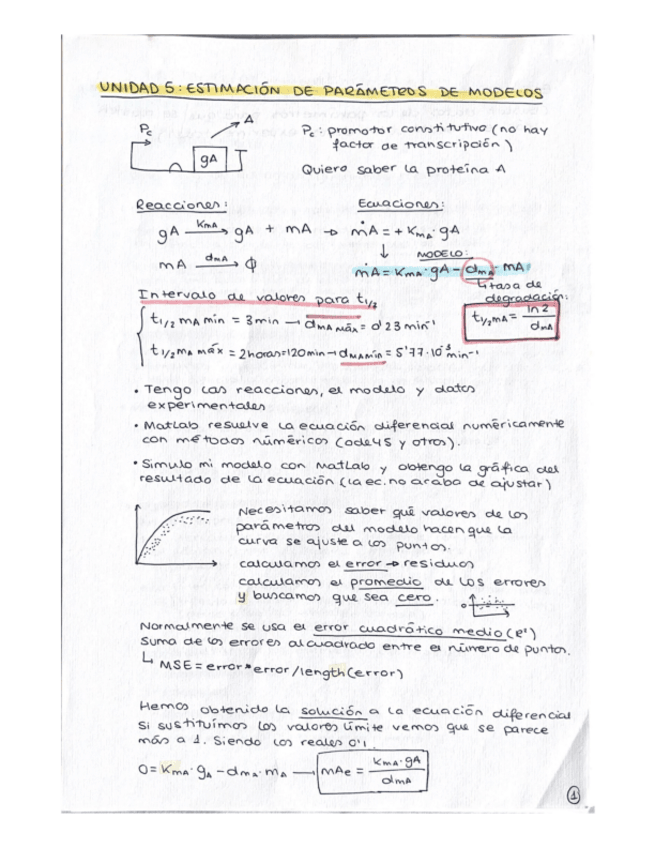 UNIDAD 5: ESTIMACIÓN DE PARÁMETROS DE MODELOS
Pc
A
gA
Pc: promotor constitutivo (no hay
factor de transcripción)
Quiero saber la proteína A
Reacciones:
gA —KmA→ gA + mA → ṁA = + KmA · gA
mA —dmA→ ϕ
Ecuaciones:
↓ MODELO:
ṁA = KmA · gA - dmA · mA
↳ tasa de
degradación:
t1/2 mA = ln 2 / dmA
Intervalo de valores para t1/2
t1/2 mA mín = 3min → dmA máx = 0'23 min⁻¹
t1/2 mA máx = 2horas=120min → dmA mín = 5'77·10⁻³ min⁻¹
• Tengo las reacciones, el modelo y datos
experimentales
• Matlab resuelve la ecuación diferencial numéricamente
con métodos númericos (ode45 y otros).
• Simulo mi modelo con Matlab y obtengo la gráfica del
resultado de la ecuación (la ec. no acaba de ajustar)
Necesitamos saber qué valores de los
parámetros del modelo hacen que la
curva se ajuste a los puntos.
calculamos el error → residuos
calculamos el promedio de los errores
y buscamos que sea cero.
0
Normalmente se usa el error cuadrático medio (e²)
Suma de los errores al cuadrado entre el número de puntos.
↳ MSE = error*error/length(error)
Hemos obtenido la solución a la ecuación diferencial
Si sustituímos los valores límite vemos que se parece
más a 1. Siendo los reales 0'1
0 = KmA · gA - dmA · mA → mAe = KmA · gA / dmA
1